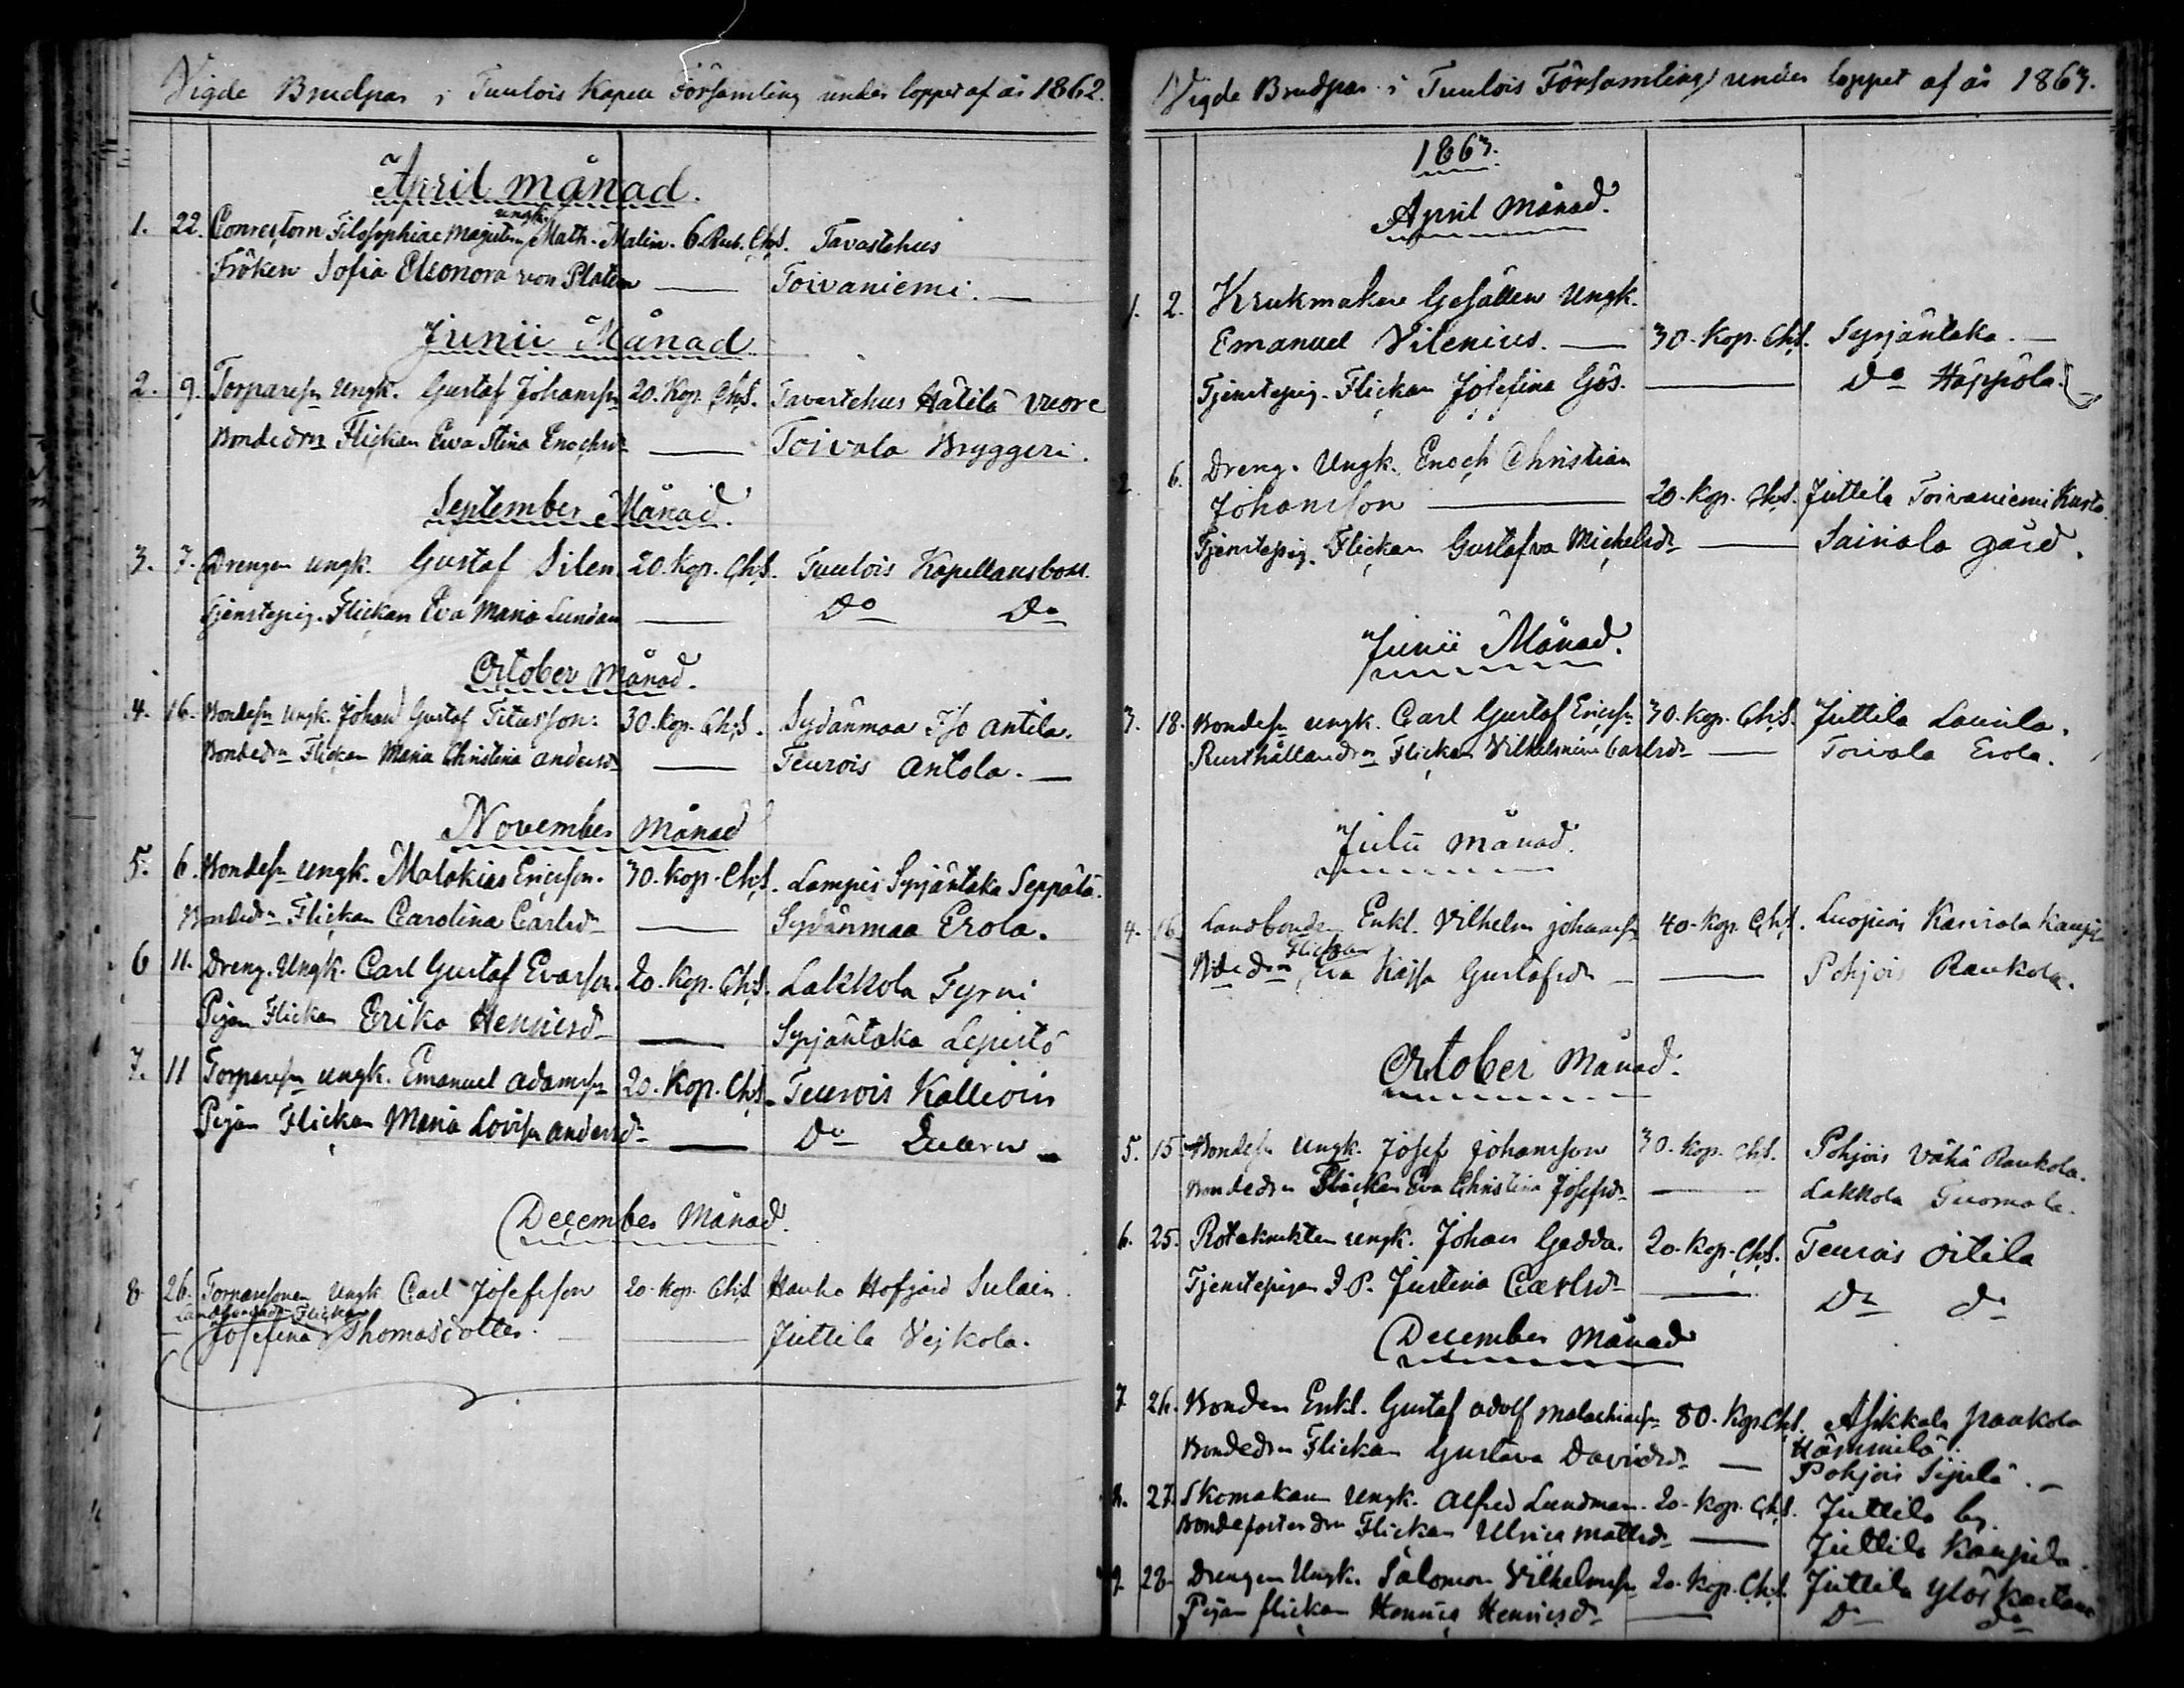 Vigde Brudpar i Tuulois Kapell Församling under loppet af år 1862.
April månad.
1. 22. Conrectorn Filosophiae Magistern ungk. Math. Malin. 6. Rub. Ch.S. Tavastehus
Fröken Sofia Eleonora von Platen — Toivaniemi. —
Junii Månad
2. 9. Torparesn Ungk. Gustaf Johanssn 20. Kop. Ch.S. Tavastehus Hätilä Vuore
Bondedrn Flickan Eva Stina Enochsdr — Toivala Bryggeri.
September Månad.
3. 7. Drengen ungk. Gustaf Silen 20. Kop. Ch.S. Tuulois Kapellansbost.
Tjenstepig. Flickan Eva Maria Lundan — Do Do
October Månad.
4. 16. Bondesn Ungk. Johan Gustaf Titusson. 30. Kop. Ch.S. Sydänmaa Iso Antila.
Bondedrn Flickan Maria Christina Andersdr — Teurois Antola. —
November Månad
5. 6. Bondesn Ungk. Malakias Ericsson. 30. Kop. Ch.S. Lampis Syrjäntaka Seppälä.
Bondedrn Flickan Carolina Carlsdr — Sydänmaa Erola.
6 11. Dreng. Ungk. Carl Gustaf Evarsson. 20. Kop. Ch.S. Lakkola Tyrni
Pigan Flickan Erika Henricsdr — Syrjäntaka Lepistö
7. 11 Torparesn ungk. Emanuel Adamssn 20. Kop. Ch.S. Teurois Kallioin
Pigan Flickan Maria Lovisa Andersdr — Do —
December Månad.
8. 26. Torparesonen Ungk. Carl Josefsson 20. Kop. Ch.S. Hauho Hofgård Sulain.
Landbondedr Flickan
Josefina Thomasdotter. — Juttila Vejkola.
Vigde Brudpar i Tuulois Församling under loppet af år 1863.
1863.
April Månad.
1. 2. Krukmakare Gesällen Ungk.
Emanuel Vilenius. — 30. Kop. Ch.S. Syrjäntaka. —
Tjenstepig. Flickan Josefina Gös. — Do Häppölä.
2 6. Dreng. Ungk. Enoch Christian
Johansson — 20. Kop. Ch.S. Juttila Toivaniemi
Tjenstepig. Flickan Gustafva Michelsdr — Sairiala gård.
Junii Månad.
3. 18. Bondesn ungk. Carl Gustaf Ericssn 30. Kop. Ch.S. Juttila Laurila.
Rusthållaredrn Flickan Vilhelmina Carlsdr — Toivala Erola.
Julii månad.
4. 16. Landbonden Enkl. Vilhelm Johanssn 40. Kop. Ch.S. Luopiois
Flickan
Bdedrn Eva Kajsa Gustafsdr — Pohjois Raukola.
October Månad.
5. 15. Bondesn Ungk. Josef Johansson 30. Kop. Ch.S. Pohjois Vähä Raukola.
Bondedrn Flickan Eva Christina Josefsdr — Lakkola Tuomola.
6. 25. Rotekarlen ungk. Johan Gedda. 20. Kop. Ch.S. Teurois Oitila
Tjenstepigan Justina Carlsdr — Do do
December Månad
7 26. Bonden Enkl. Gustaf Adolf Malachiassn 80. Kop. Ch.S. Asikkala
Bondedrn Flickan Gustava Davidsdr — Pohjois Sipilä. —
8. 27. Skomakaren Ungk. Alfred Lundman. 20. Kop. Ch.S. Juttila by.
Bondefosterdrn Flickan Ulrica Mattsdr — Juttila Kaupila.
9. 28. Drengen Ungk. Salomon Vilhelmssn 20. Kop. Ch.S. Juttila
Pigan flickan Henrica Henricsdr — Do do